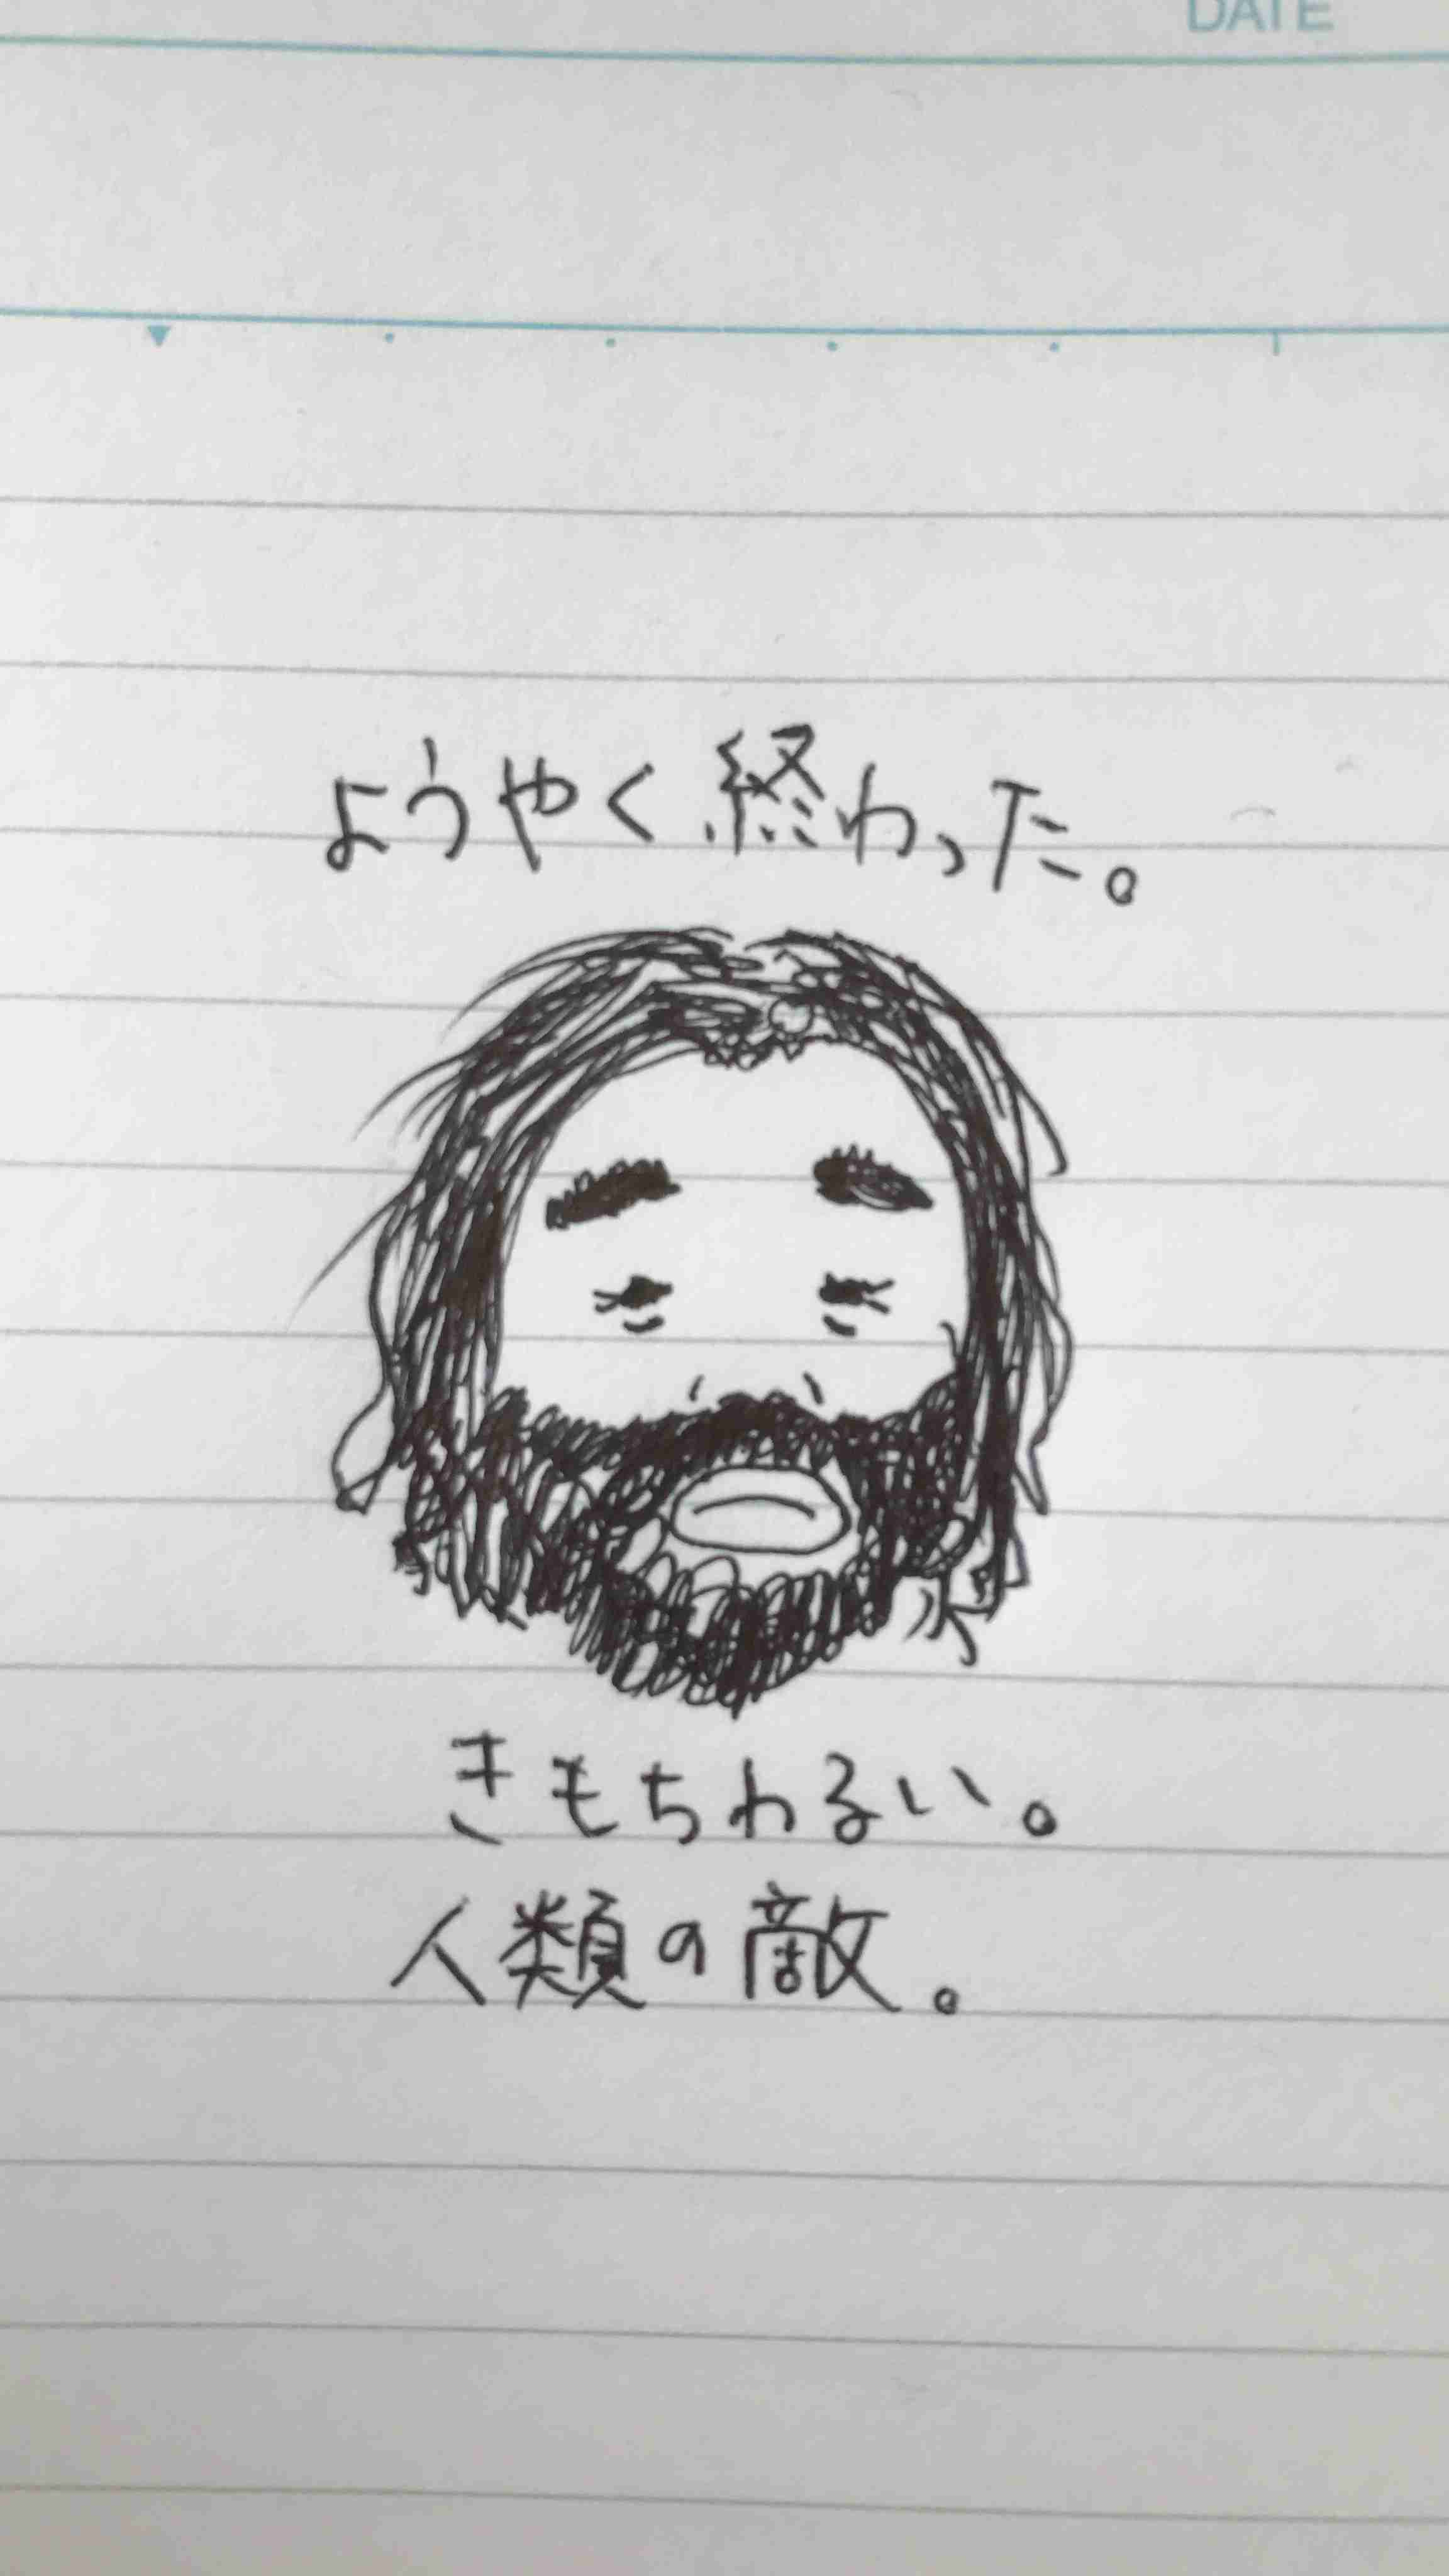 DATE
ようやく終わった。
きもちわるい。
人類の敵。